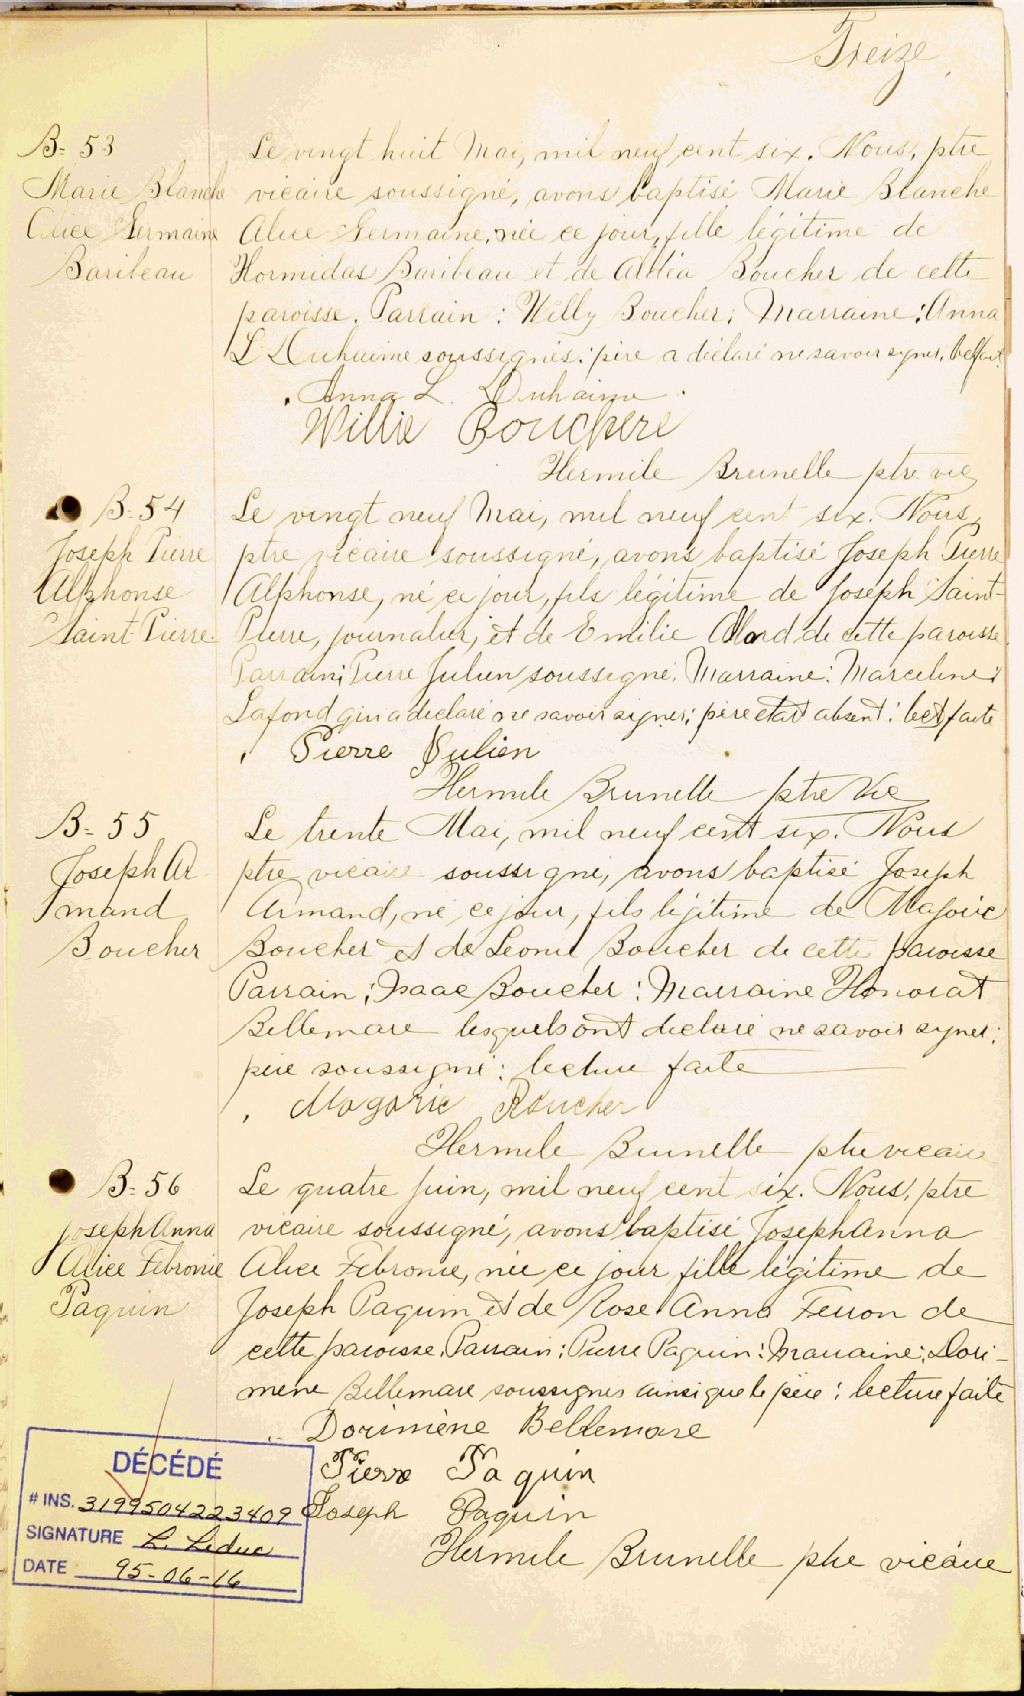 Treize
B- 53
Marie Blanche
Alice Germaine
Baribeau
Le vingt huit Mai, mil neuf cent six. Nous, ptre
vicaire soussigné, avons baptisé Marie Blanche
Alice Germaine, née ce jour, fille légitime de
Hormidas Baribeau et de Aldéa Boucher de cette
paroisse. Parrain : Willy Boucher; Marraine : Anna
L Duhaime soussignés : père a déclaré ne savoir signer.
Anna L. Duhaime
Willie Bouchere
Hermile Brunelle ptre vic
B- 54
Joseph Pierre
Alphonse
Saint Pierre
Le vingt neuf Mai, mil neuf cent six. Nous,
ptre vicaire soussigné, avons baptisé Joseph Pierre
Alphonse, né ce jour, fils légitime de Joseph Saint-
Pierre, journalier, et de Emilie de cette paroisse
Parrain; Pierre Julien soussigné. Marraine : Marceline
Lafond qui a déclaré ne savoir signer; père etait absent : lect faite
Pierre Julien
Hermile Brunelle ptre Vic
B- 55
Joseph Ar
mand
Boucher
Le trente Mai, mil neuf cent six. Nous
ptre vicaire soussigné, avons baptisé Joseph
Armand, né ce jour, fils légitime de Majoric
Boucher et de Leonie Boucher de cette paroisse
Parrain ; Isaac Boucher : Marraine Honorat
Bellemare lesquels ont déclaré ne savoir signer;
père soussigné : lecture faite
Magoric Boucher
Hermile Brunelle ptre vicaire
B- 56
Joseph Anna
Alice Febronie
Paquin
Le quatre Juin, mil neuf cent six. Nous, ptre
vicaire soussigné, avons baptisé Joseph Anna
Alice Febronie, née ce jour fille légitime de
Joseph Paquin et de Rose Anna Ferron de
cette paroisse. Parrain : Pierre Paquin : Marraine : Dori-
mène Bellemare soussignés ainsi que le père : lecture faite
Dorimène Bellemare
Pierre Paquin
Joseph Paquin
Hermile Brunelle ptre vicaire
DÉCÉDÉ
# INS. 3199504223409
SIGNATURE L. Leduc
DATE 95-06-16